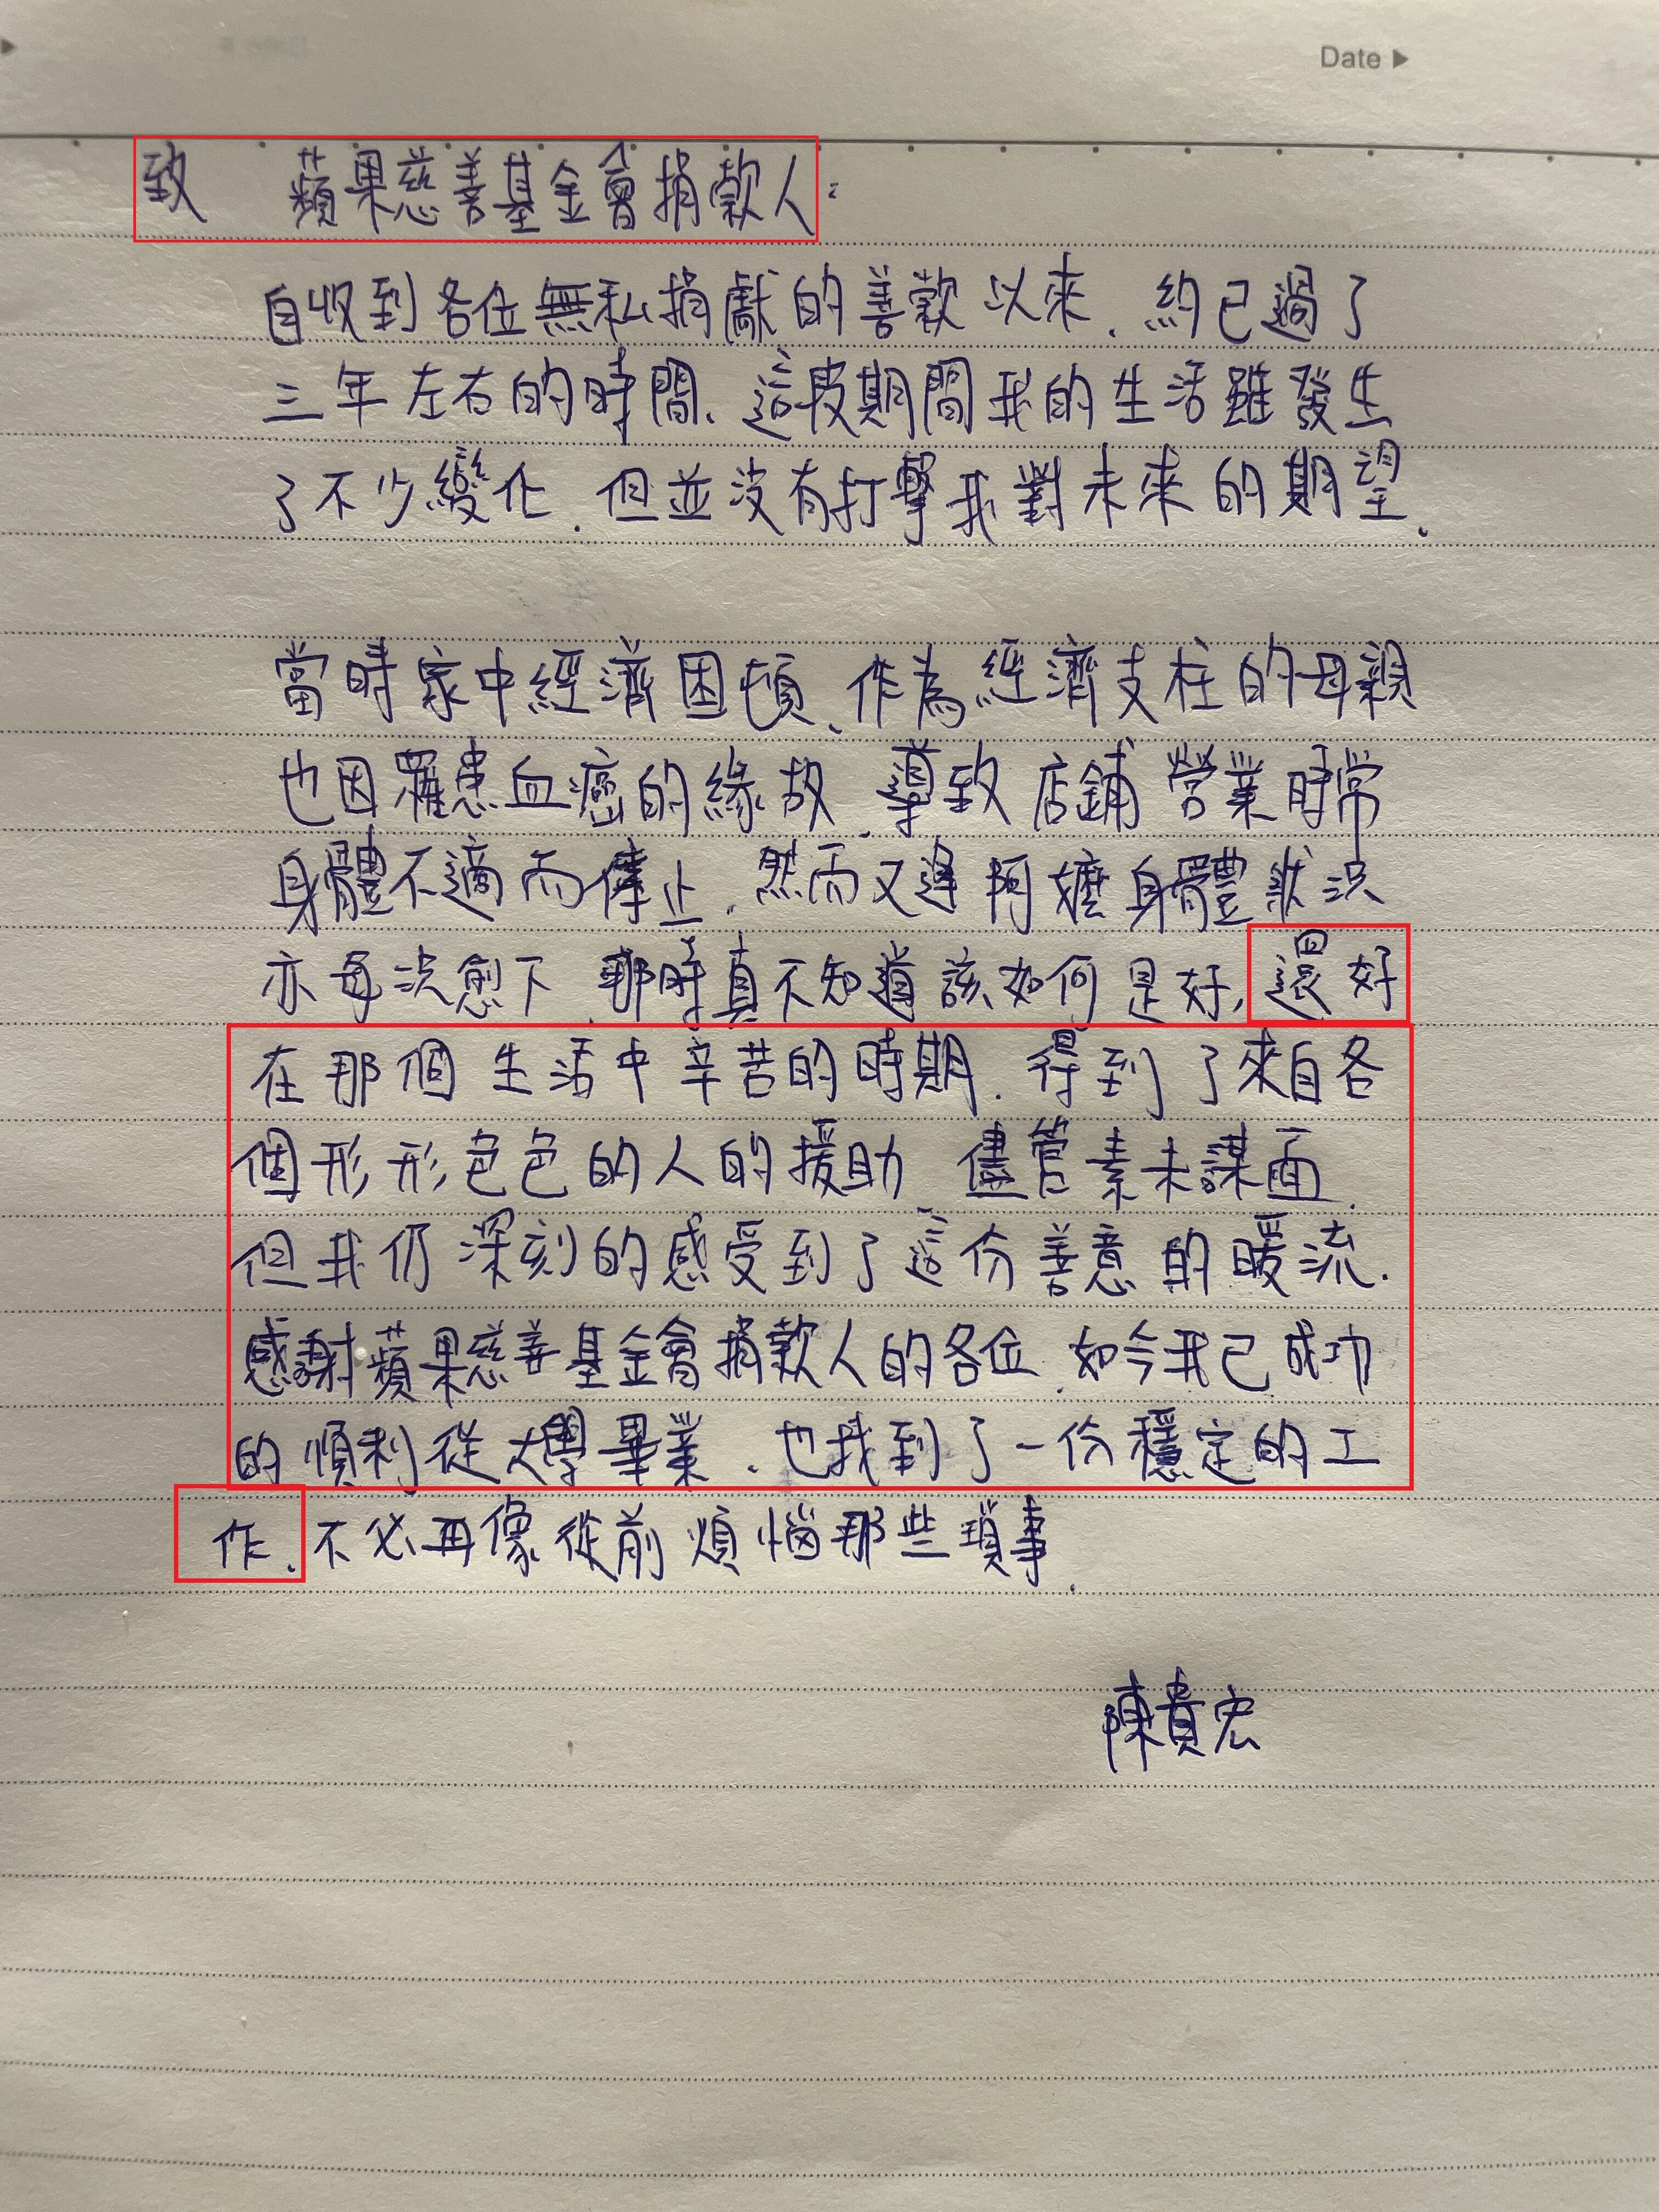 Date ▶
致 蘋果慈善基金會捐款人:
自收到各位無私捐獻的善款以來、約已過了
三年左右的時間、這段期間我的生活雖發生
了不少變化、但並沒有打擊我對未來的期望、
當時家中經濟困頓、作為經濟支柱的母親
也因罹患血癌的緣故、導致店鋪營業時常
身體不適而停止、然而又逢阿嬤身體狀況
亦每況愈下、那時真不知道該如何是好,還好
在那個生活中辛苦的時期、得到了來自各
個形形色色的人的援助、儘管素未謀面、
但我仍深刻的感受到了這份善意的暖流.
感謝蘋果慈善基金會捐款人的各位、如今我已成功
的順利從大學畢業、也找到了一份穩定的工
作、不必再像從前煩惱那些瑣事、
陳貴宏